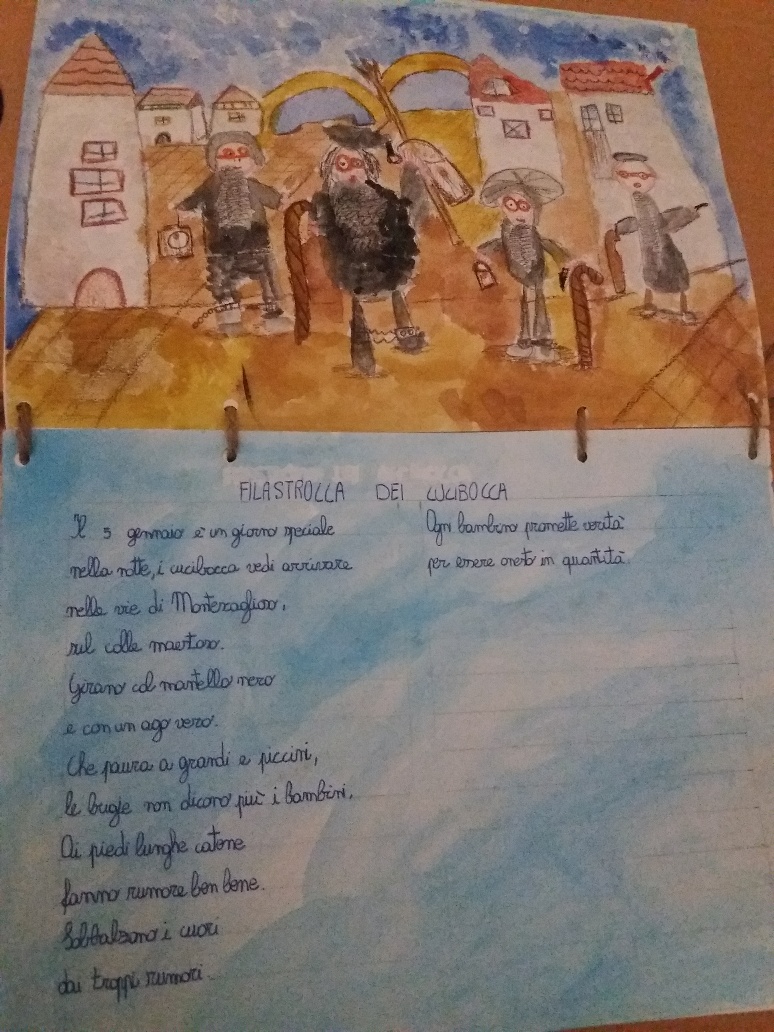 FILASTROCCA DEI CUCIBOCCA
Il 5 gennaio è un giorno speciale
nella notte, i cucibocca vedi arrivare
nelle vie di Montescaglioso,
sul colle maestoso.
Girano col mantello nero
e con un ago vero.
Che paura a grandi e piccini,
le bugie non dicono più i bambini.
Ai piedi lunghe catene
fanno rumore ben bene.
Sobbalzano i cuori
dai troppi rumori.
Ogni bambino promette verità
per essere onesto in quantità.